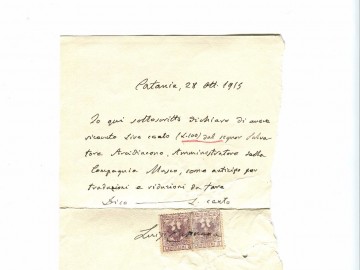 Catania, 28 Ott. 1915
Io qui sottoscritto dichiaro di avere
ricevuto Lire cento (L.100) dal signor Salva-
tore Arcidiacono, Amministratore della
Compagnia Musco, come anticipo per
traduzioni e riduzioni da fare
Dico L. cento
Luigi